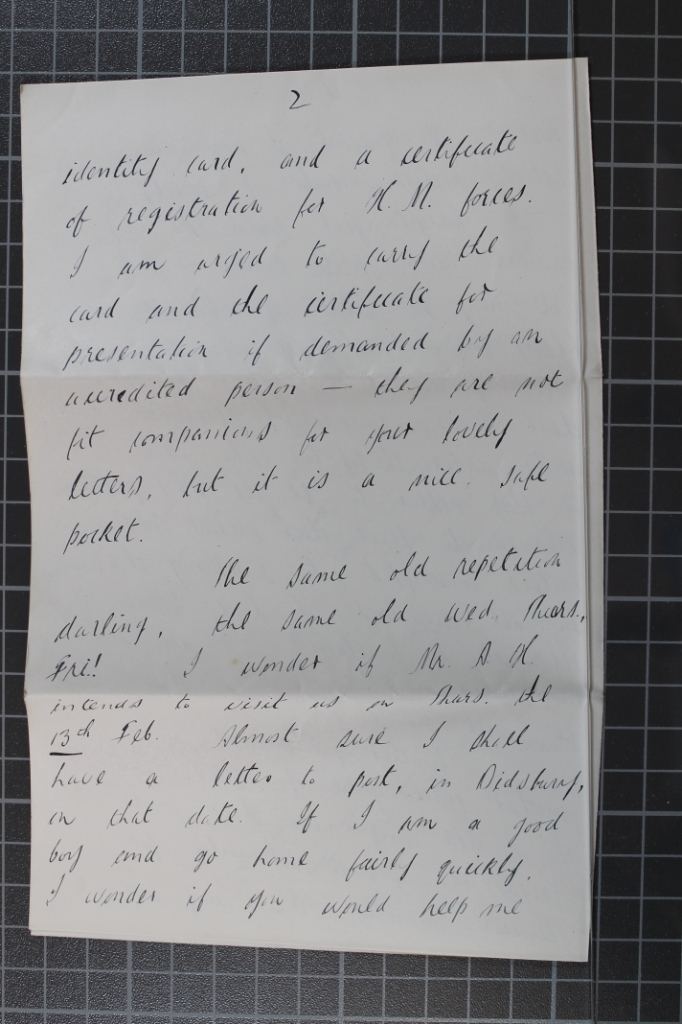 2
identity card, and a certificate
of registration for H. M. forces.
I am urged to carry the
card and the certificate for
presentation if demanded by an
accredited person — they are not
fit companions for your lovely
letters, but it is a nice safe
pocket.
The same old repetition
darling, the same old Wed. Thurs.,
Fri! I wonder if Mr. A. H.
intends to visit us on Thurs. the
13th Feb. Almost sure I shall
have a letter to post, in Didsbury,
on that date. If I am a good
boy and go home fairly quickly.
I wonder if you would help me